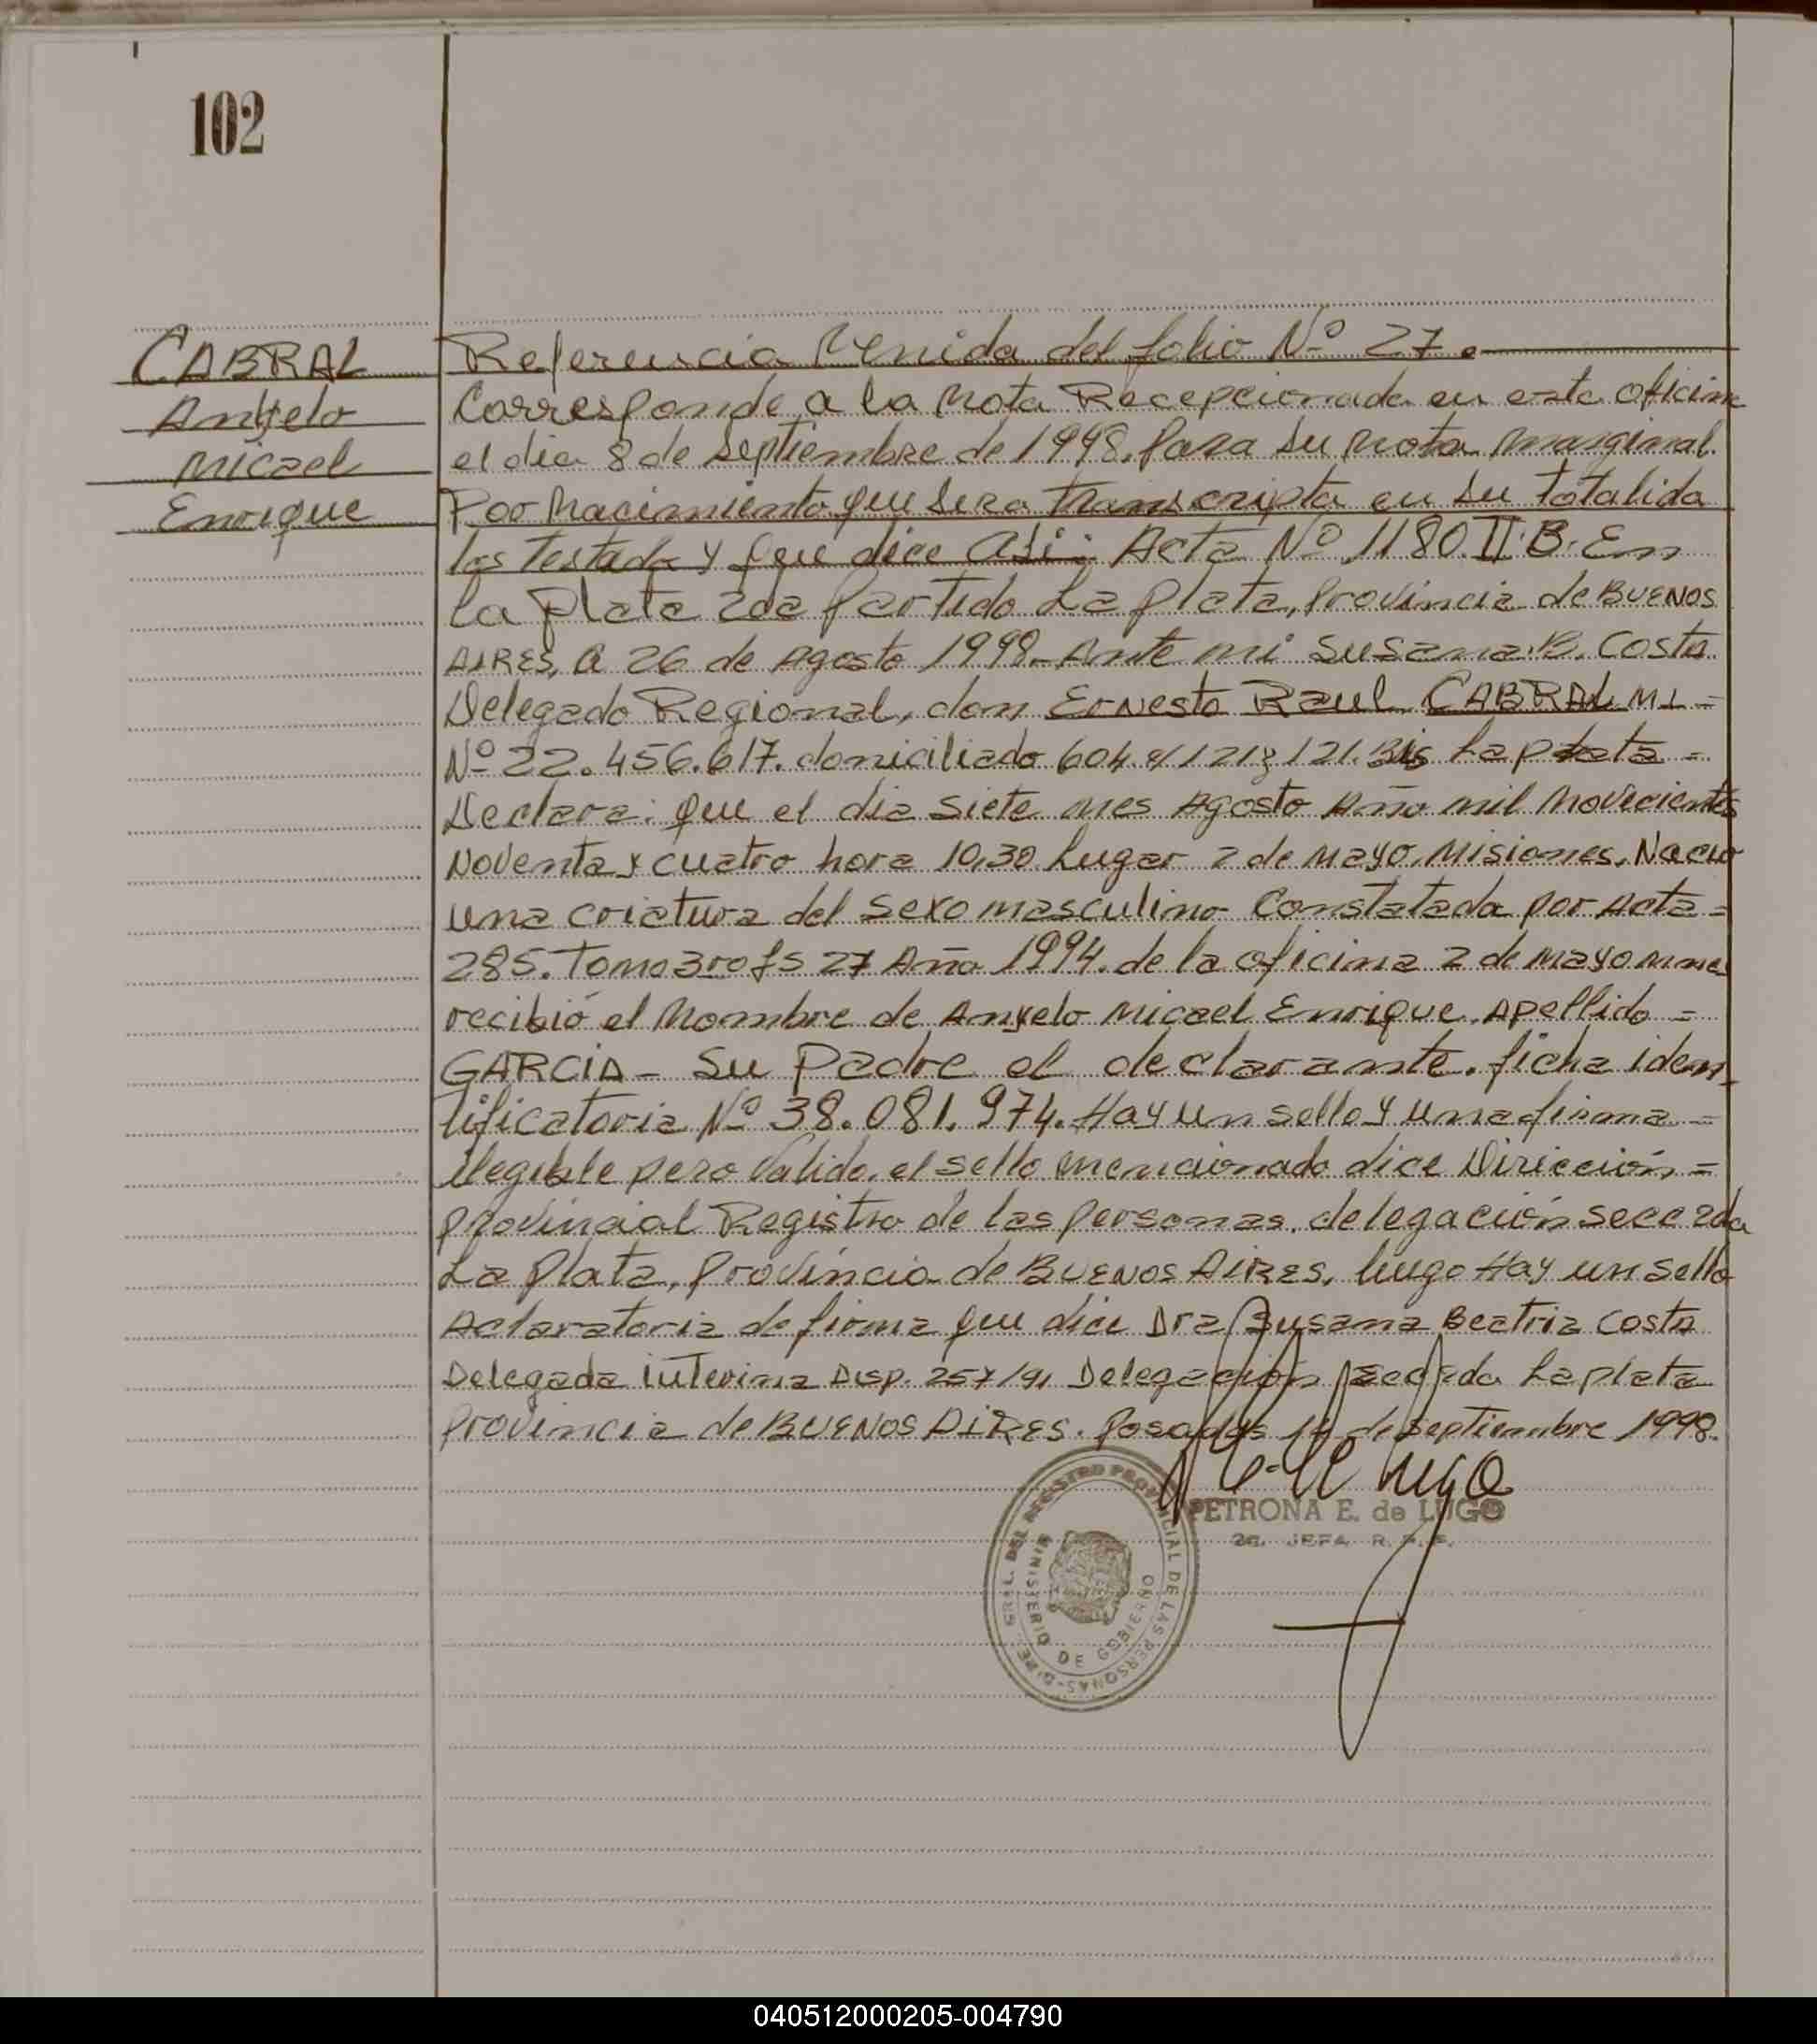 102
CABRAL
Anyelo
Micael
Enrique
Referencia Venida del folio Nº 27.
Corresponde a la Nota Recepcionada en esta oficina
el dia 8 de Septiembre de 1998. Para su nota marginal.
Por Nacimiento que sera transcripta en su totalida
los Testado y que dice asi: Acta Nº 1180.II.B. En
La Plata 2da Partido La Plata, Provincia de BUENOS
AIRES, a 26 de Agosto 1998.- Ante mi Susana B. Costa
Delegado Regional, don Ernesto Raul CABRAL MI =
Nº 22.456.617. domiciliado 604 e/ 121 y 121. Bis La plata =
Declara: que el dia siete mes Agosto Año mil Novecientos
Noventa y cuatro hora 10,30 Lugar 2 de Mayo, Misiones. Nacio
una criatura del sexo masculino Constatada por Acta =
285. Tomo 3ro fs 27 Año 1994. de la oficina 2 de Mayo
recibió el Nombre de Anyelo Micael Enrique. Apellido =
GARCIA - Su Padre el declarante. ficha iden_
tificatoria Nº 38.081.974. Hay un sello y una firma =
ilegible pero valido. el sello mencionado dice Direccion =
provincial Registro de las personas. delegación secc 2da
La Plata, Provincia de BUENOS AIRES, luego Hay un sello
Aclaratoria de firma que dice Dra Susana Beatriz Costa
Delegada interina Disp. 257/91 Delegación secc 2da La plata
Provincia de BUENOS AIRES. Posadas 14 de Septiembre 1998.
PETRONA E. de LUGO
2a. JEFA R.P.P.
DIRE. GRAL. DEL REGISTRO PROVINCIAL DE LAS PERSONAS
MINISTERIO DE GOBIERNO
040512000205-004790